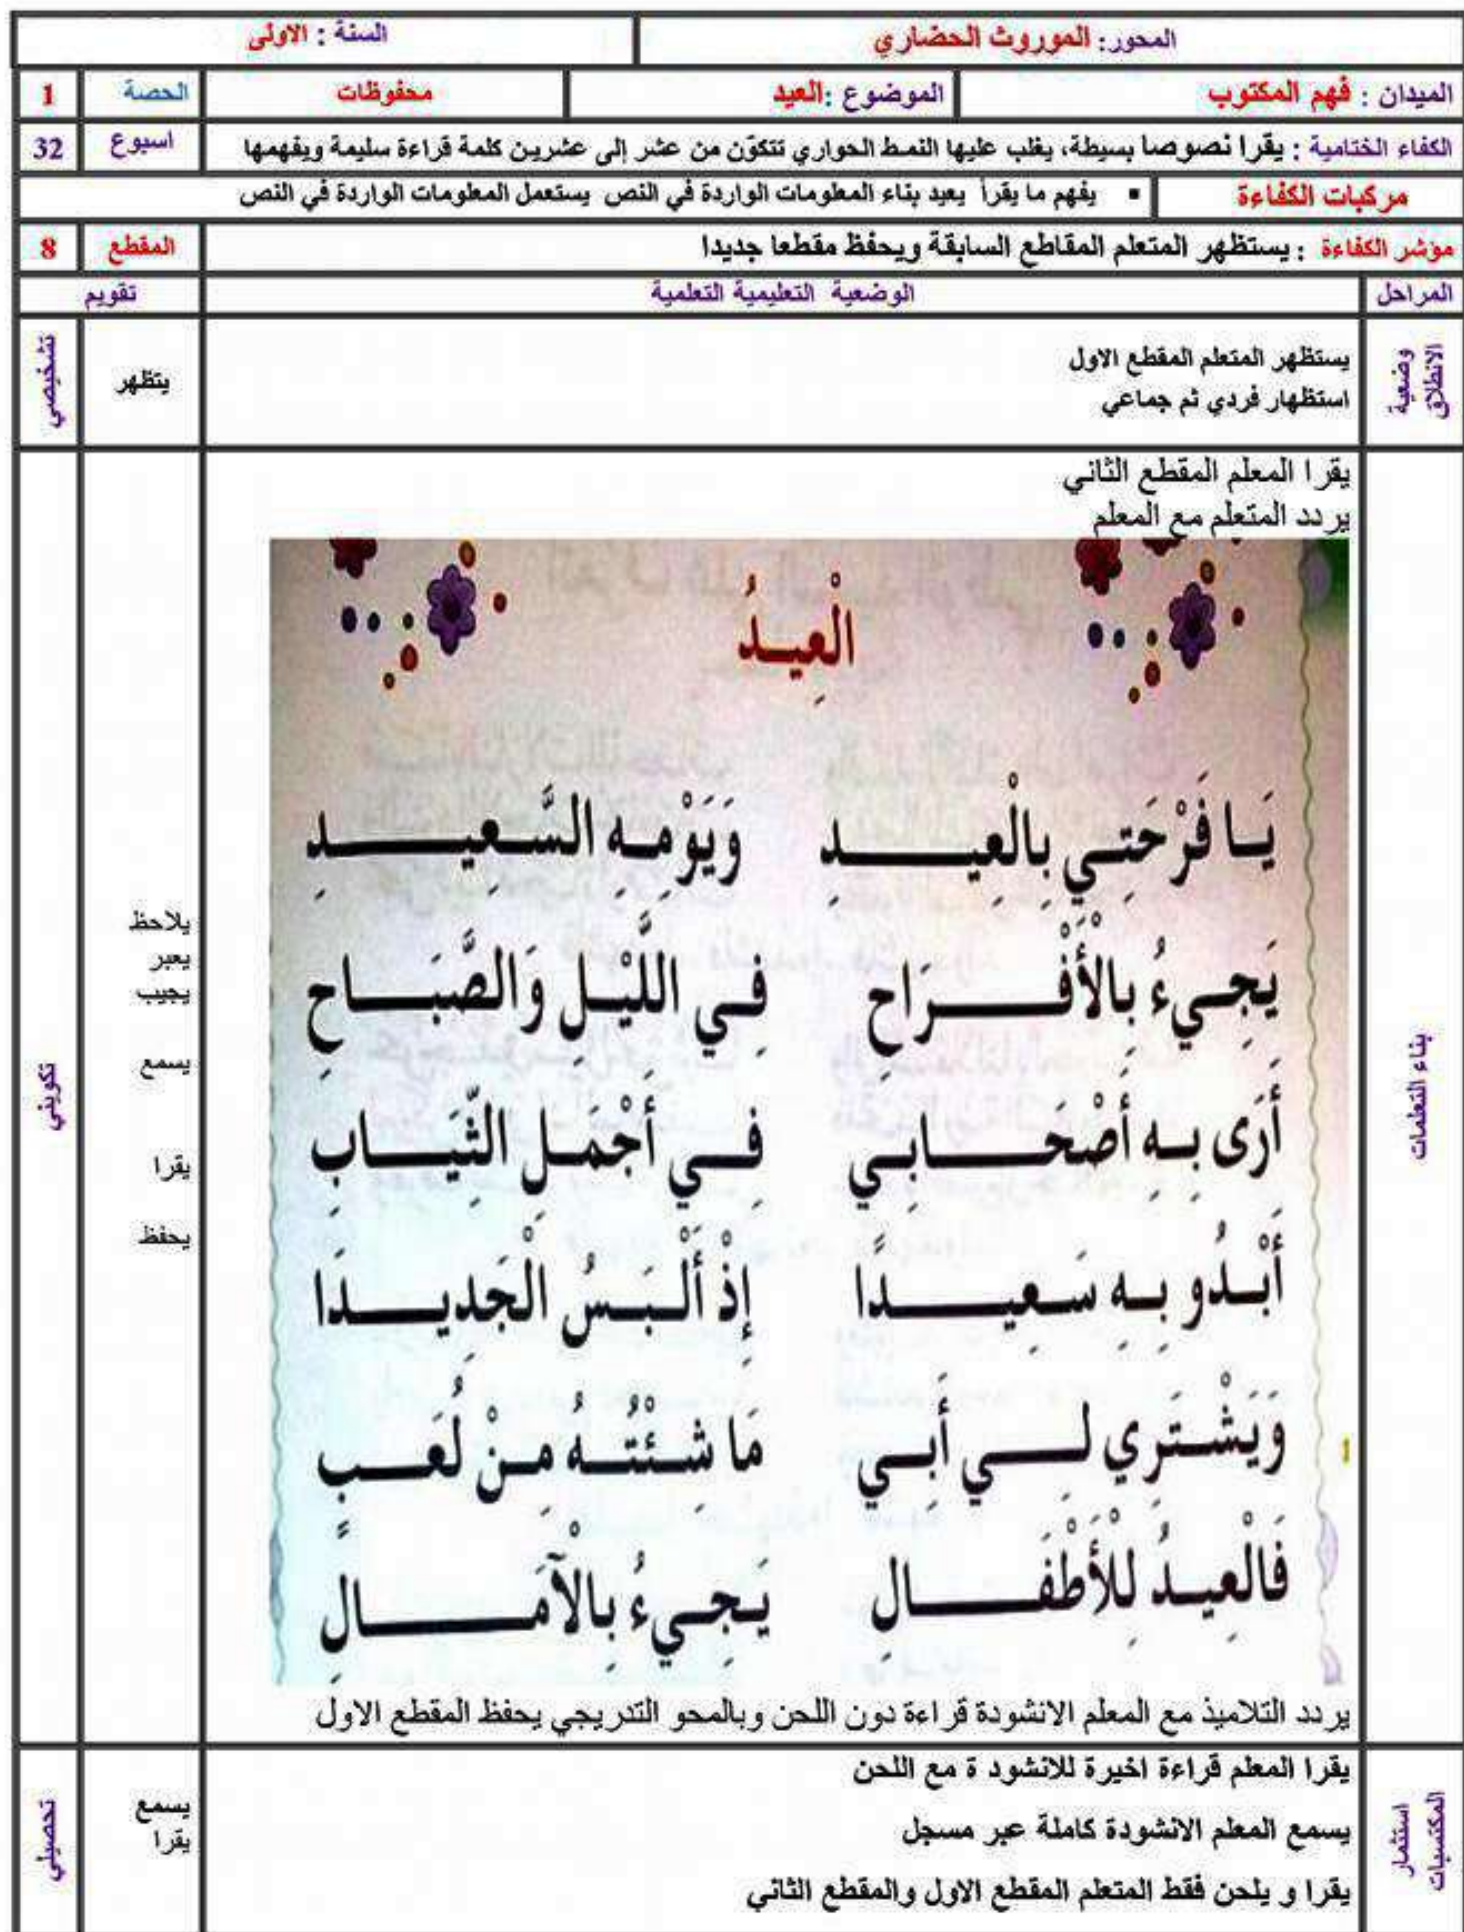 المحور: الموروث الحضاري السنة : الاولى
الميدان : فهم المكتوب الموضوع :العيد محفوظات الحصة 1
الكفاء الختامية : يقرا نصوصا بسيطة، يغلب عليها النمط الحواري تتكوّن من عشر إلى عشرين كلمة قراءة سليمة ويفهمها اسبوع 32
مركبات الكفاءة ▪ يفهم ما يقرأ يعيد بناء المعلومات الواردة في النص يستعمل المعلومات الواردة في النص
مؤشر الكفاءة : يستظهر المتعلم المقاطع السابقة ويحفظ مقطعا جديدا المقطع 8
المراحل الوضعية التعليمية التعلمية تقويم
وضعية
الانطلاق
يستظهر المتعلم المقطع الاول
استظهار فردي ثم جماعي
يتظهر
تشخيصي
بناء التعلمات
يقرا المعلم المقطع الثاني
يردد المتعلم مع المعلم
الْعِيـدُ
يَـا فَرْحَتِـي بِالْعِيـــــدِ وَيَوْمِـهِ السَّـعِيـــــدِ
يَجِـيءُ بِالْأَفْـــــرَاحِ فِـي اللَّيْـلِ وَالصَّبَـــاحِ
أَرَى بِـهِ أَصْحَـــــابِـي فِـــي أَجْمَـلِ الثِّيَـــابِ
أَبْـدُو بِـهِ سَـعِيـــــدًا إِذْ أَلْـبَـسُ الْجَدِيـــــدَا
وَيَشْـتَرِي لِـــــي أَبِـــي مَا شِـئْتُـهُ مِـنْ لُعَـــبٍ
فَالْعِيـدُ لِلْأَطْفَـــــالِ يَـجِـيءُ بِالْآمَـــــالِ
1
يردد التلاميذ مع المعلم الانشودة قراءة دون اللحن وبالمحو التدريجي يحفظ المقطع الاول
يلاحظ
يعبر
يجيب
يسمع
يقرا
يحفظ
تكويني
استثمار
المكتسبات
يقرا المعلم قراءة اخيرة للانشود ة مع اللحن
يسمع المعلم الانشودة كاملة عبر مسجل
يقرا و يلحن فقط المتعلم المقطع الاول والمقطع الثاني
يسمع
يقرا
تحصيلي